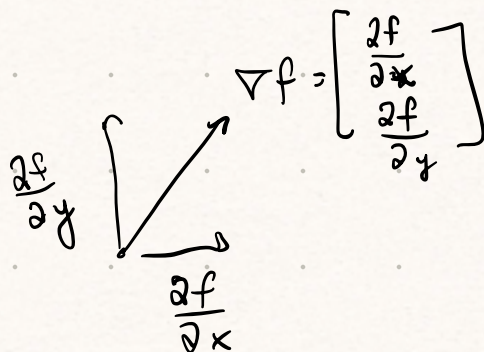 ∇f = [∂f/∂x
∂f/∂y]
∂f/∂y
∂f/∂x